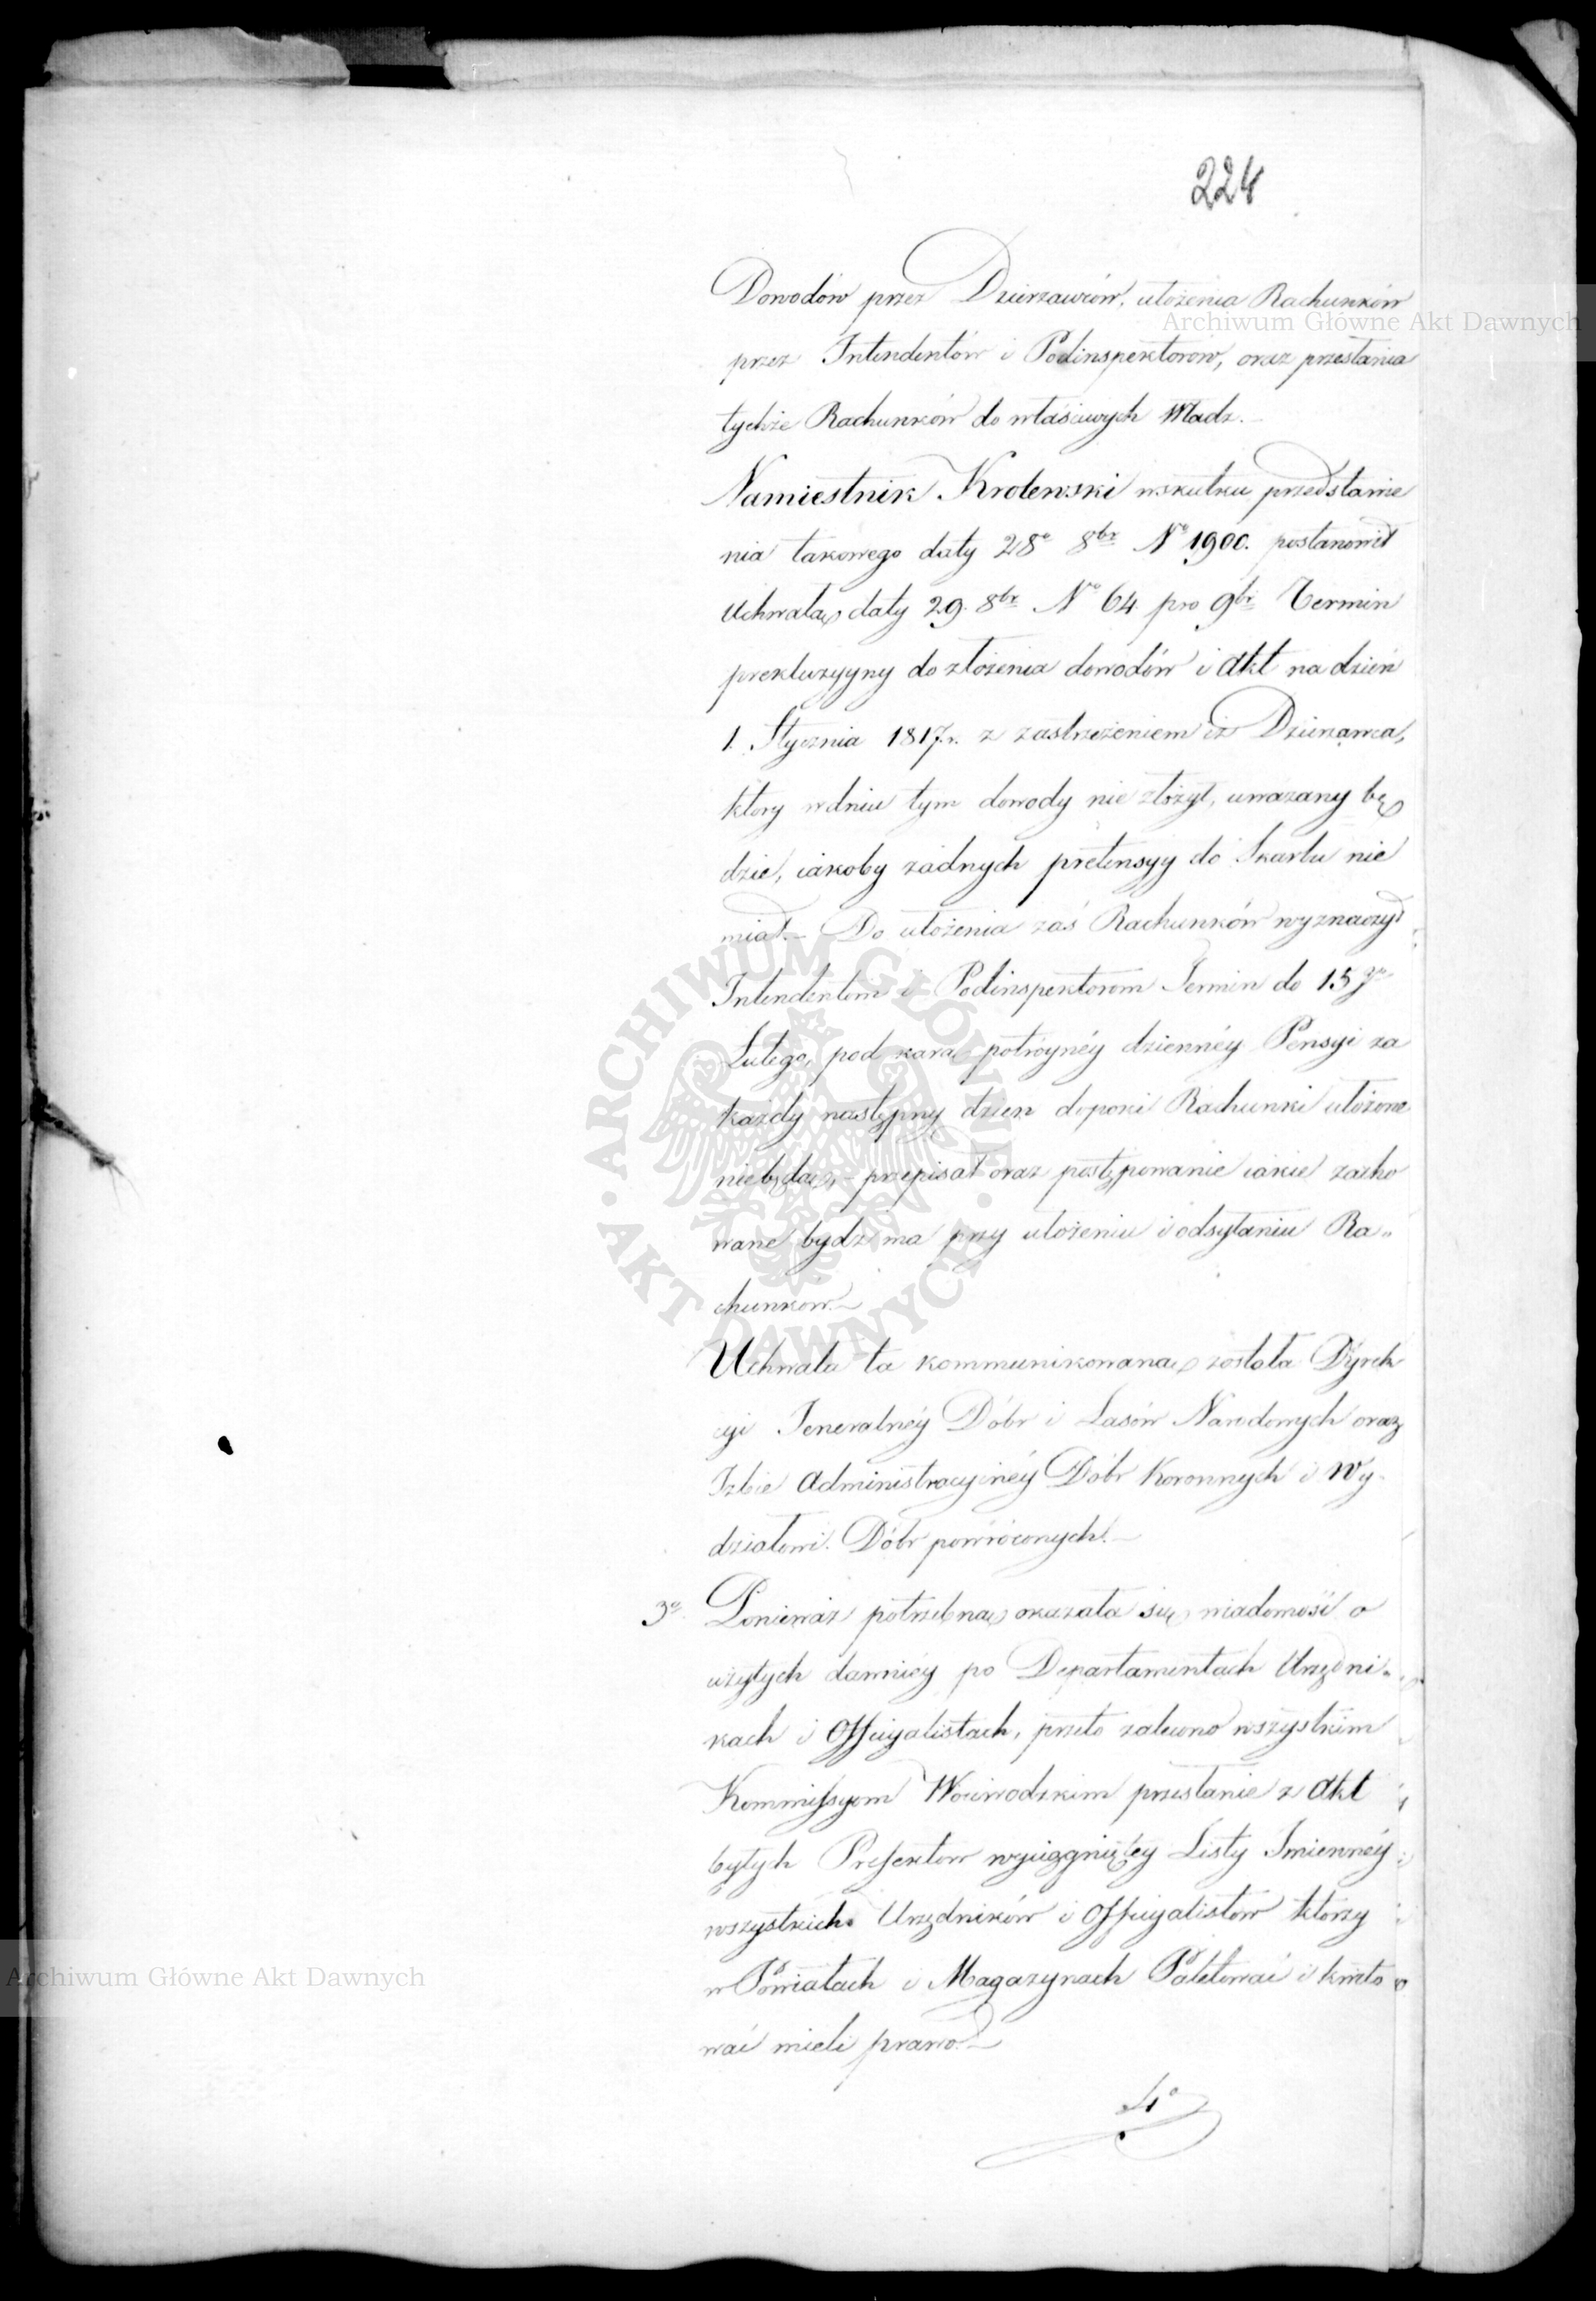 224
Dowodów przez Dzierzawców, ułożenia Rachunków
przez Intendentów i Podinspektorów, oraz przesłania
tychże Rachunków do właściwych Władz.
Namiestnik Krolewski wskutku przedstawie
nia takowego daty 28º 8br Nº 1900. postanowił
Uchwałą daty 29. 8br Nº 64 pro 9br Termin
prekluzyyny do złożenia dowodów i Akt na dzień
1. Stycznia 1817. r. z zastrzeżeniem iż Dzierzawca,
ktory w dniu tym dowody nie złożył, uwazany bę
dzie, iakoby żadnych pretensyy do Skarbu nie
miał. Do ułożenia zaś Rachunków wyznaczył
Intendentom i Podinspektorom Termin do 15go
Lutego, pod karą potróynéy dziennéy Pensyi za
każdy następny dzien dopoki Rachunki ułożone
niebędą, – przepisał oraz postępowanie iakie zacho
wane bydź ma przy ułożeniu i odsyłaniu Ra„
chunkow.
Uchwała ta kommunikowaną została Dyrek
cyi Jeneralnéy Dóbr i Lasów Narodowych oraz
Izbie Administracyinéy Dóbr Koronnych i Wy-
działowi Dóbr powróconych.
3º Ponieważ potrzebną okazała się wiadomość o
użytych dawniéy po Departamentach Urzędni„
kach i Officyalistach, przeto zalecono wszystkim
Kommissyom Woiewodzkim przesłanie z Akt
byłych Prefektow wyciągniętey Listy Imiennéy
wszystkich Urzędników i Officyalistow ktorzy
w Powiatach i Magazynach Paletować i kwito
wać mieli prawo.
4º
Archiwum Główne Akt Dawnych
Archiwum Główne Akt Dawnych
ARCHIWUM GŁÓWNE AKT DAWNYCH